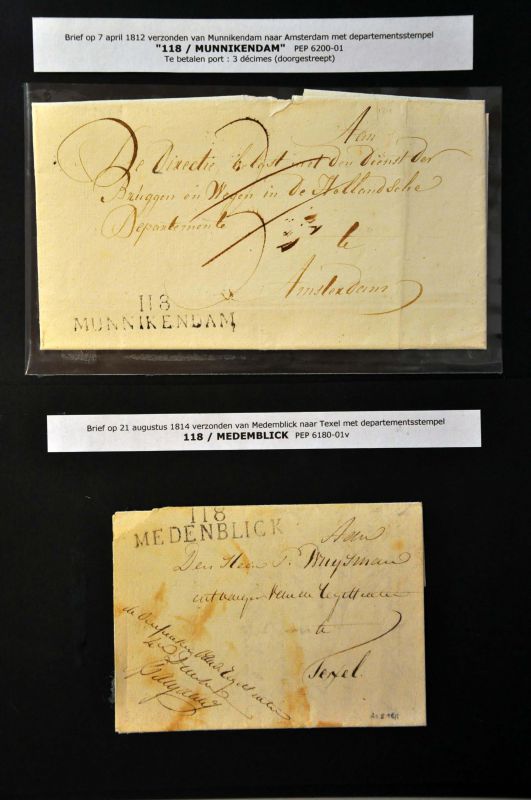 Brief op 7 april 1812 verzonden van Munnikendam naar Amsterdam met departementsstempel
"118 / MUNNIKENDAM" PEP 6200-01
Te betalen port : 3 décimes (doorgestreept)
Aan
De Directie belast met den Dienst der
Bruggen en Wegen in de Hollandsche
Departemente
te
Amsterdam
118
MUNNIKENDAM
Brief op 21 augustus 1814 verzonden van Medemblick naar Texel met departementsstempel
118 / MEDEMBLICK PEP 6180-01v
118
MEDENBLICK
Aan
Den Heer P. Wuijsman
ontvanger van de
te
Texel.